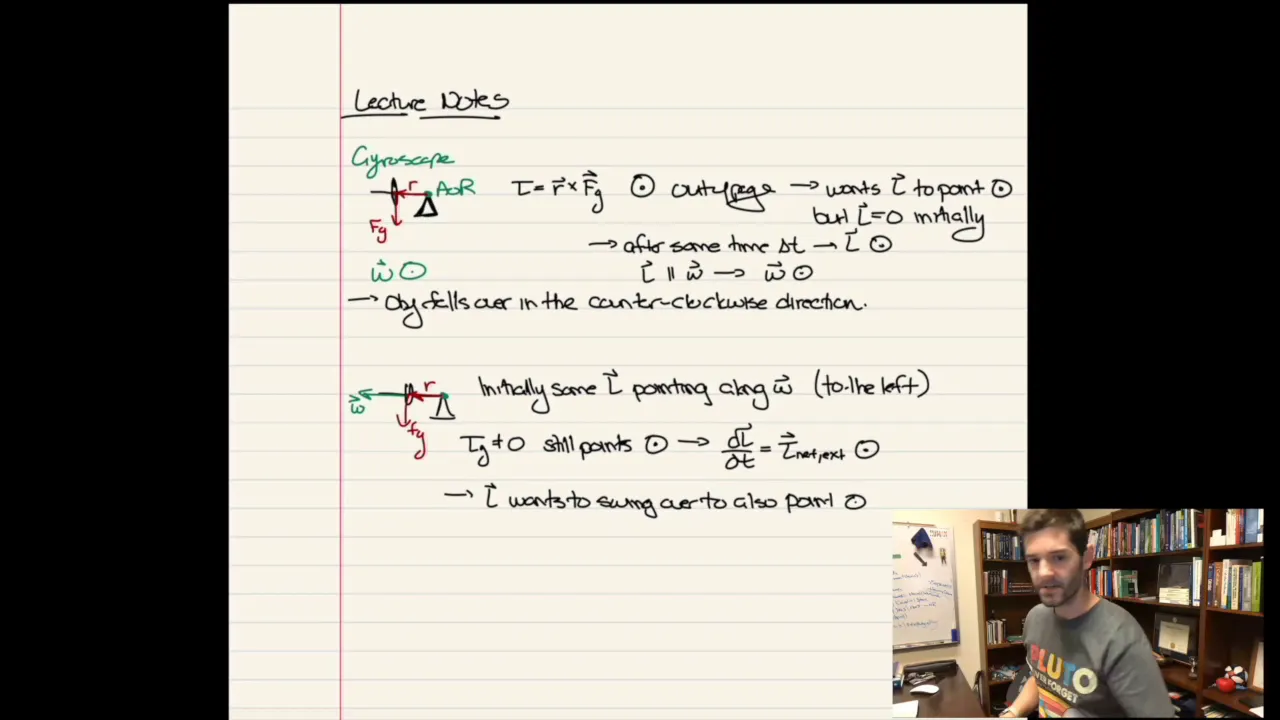 Lecture Notes
Gyroscope
r AOR
Fg
τ = r⃗ × F⃗g ⊙ out of page → wants L⃗ to point ⊙
but L⃗ = 0 initially
→ after some time Δt → L⃗ ⊙
L⃗ || ω⃗ → ω⃗ ⊙
ω⃗ ⊙
→ Obj falls over in the counter-clockwise direction.
ω⃗ r
Fg
Initially some L⃗ pointing along ω⃗ (to the left)
τg ≠ 0 still points ⊙ → dL⃗/dt = τ⃗net,ext ⊙
→ L⃗ wants to swing over to also point ⊙
PLUTO